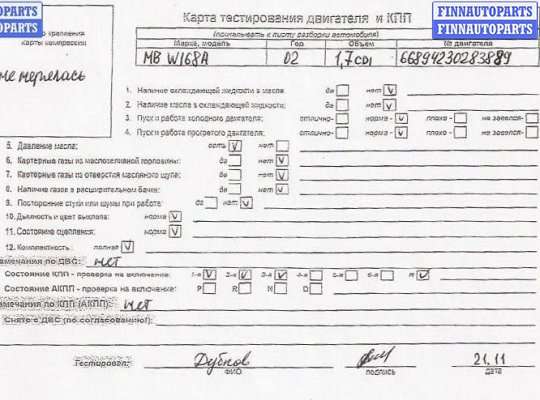 AUTOPARTS
TOPARTS
FINNAUTOPARTS
FINNAUTOPARTS
Карта тестирования двигателя и КПП
(прикалывать к листу разборки автомобиля)
крепления
карты компрессии)
Марка, модель Год Объем № двигателя
MB W168A 02 1,7 CDI 66894230283889
не мерялась
1. Наличие охлаждающей жидкости в масле да нет V
2. Наличие масла в охлаждающей жидкости: да нет V
3. Пуск и работа холодного двигателя: отлично- норма - V плохо - не завелся-
4. Пуск и работа прогретого двигателя: отлично- норма - V плохо - не завелся-
5. Давление масла: есть V нет
6. Картерные газы из маслозаливной горловины: да нет V
7. Картерные газы из отверстия масляного щупа: да нет V
8. Наличие газов в расширительном бачке: да нет V
9. Посторонние стуки или шумы при работе: да нет V
10. Дымность и цвет выхлопа: норма V
11. Состояние сцепления: норма V
12. Комплектность: полная V
замечания по ДВС: нет
Состояние КПП - проверка на включение: 1-я V 2-я V 3-я V 4-я 5-я 6-я R V
Состояние АКПП - проверка на включение: P R N D
замечания по КПП (АКПП): нет
Снято с ДВС (по согласованию!):
Тестировал: Дубков 21.11
ФИО подпись дата